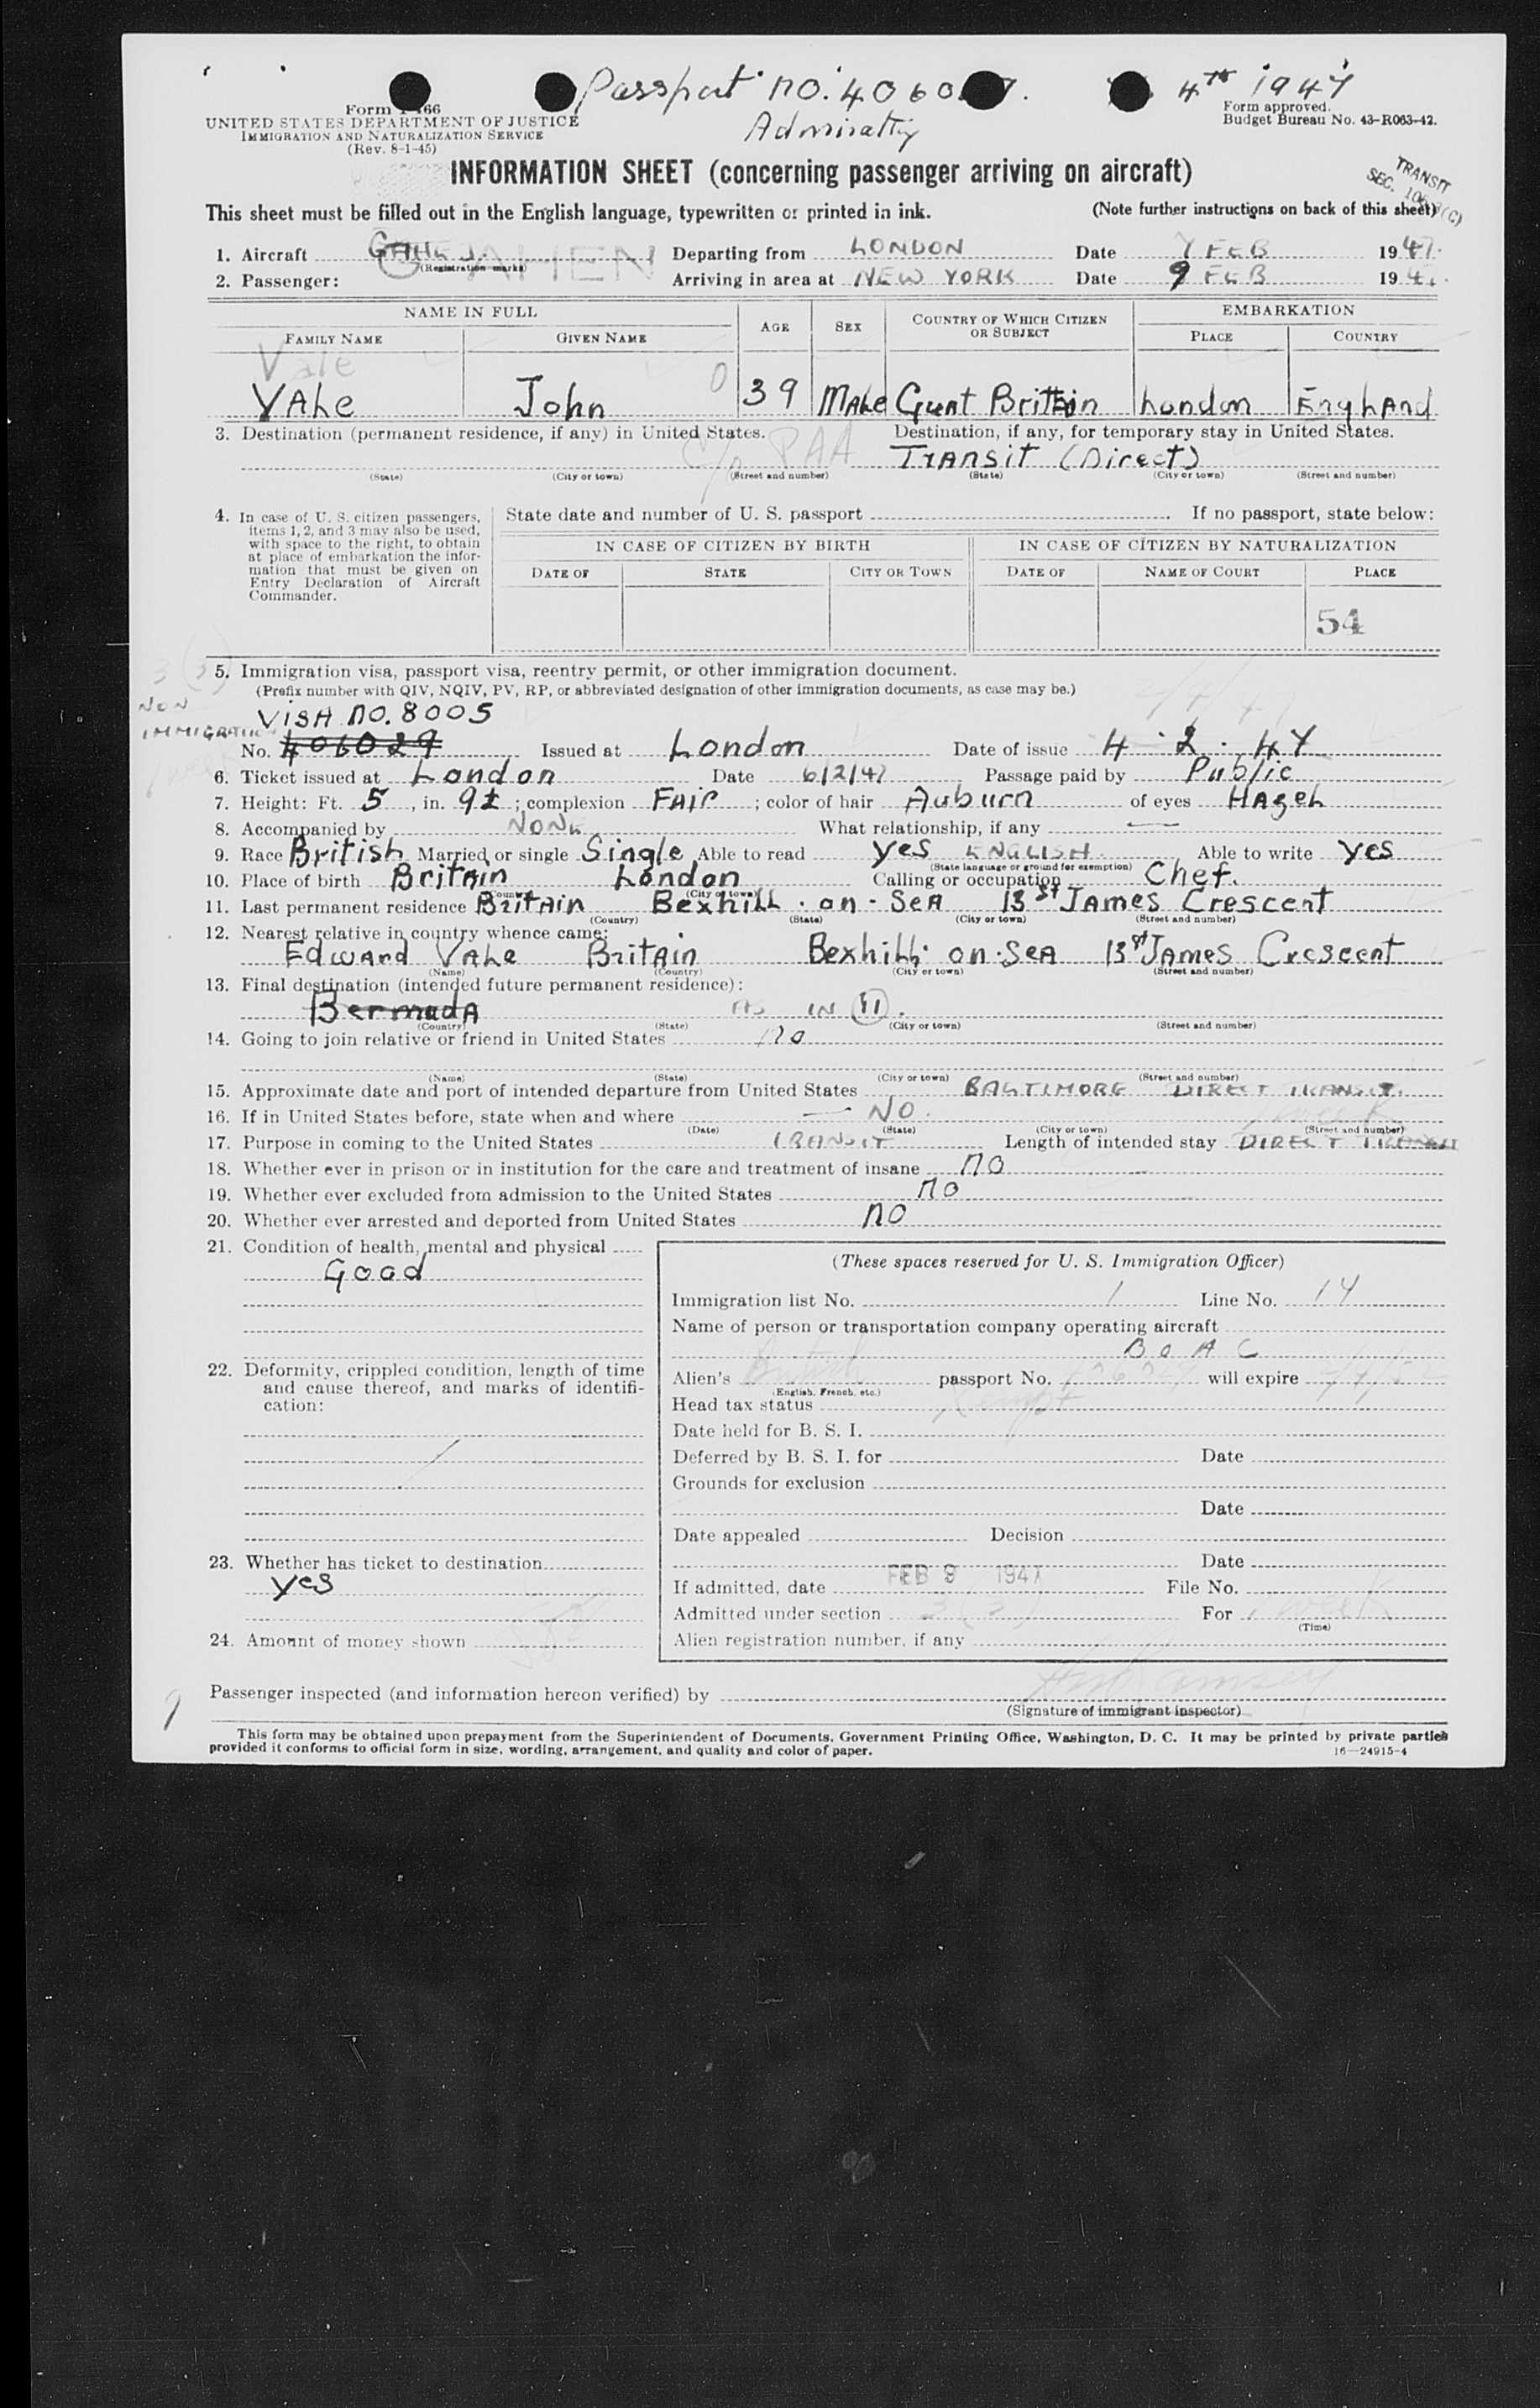 Passport no. 4060 4th 1947
Admiralty
Form 66
UNITED STATES DEPARTMENT OF JUSTICE
IMMIGRATION AND NATURALIZATION SERVICE
(Rev. 8-1-45)
Form approved.
Budget Bureau No. 43-R063-42.
INFORMATION SHEET (concerning passenger arriving on aircraft)
TRANSIT
SEC.
This sheet must be filled out in the English language, typewritten or printed in ink. (Note further instructions on back of this sheet)
1. Aircraft GAHEJ. Departing from LONDON Date 7 FEB 1947.
(Registration marks)
GAHEN
2. Passenger: Arriving in area at NEW YORK Date 9 FEB 1947.
NAME IN FULL AGE SEX COUNTRY OF WHICH CITIZEN OR SUBJECT EMBARKATION
FAMILY NAME GIVEN NAME PLACE COUNTRY
Vale
VALe John 39 MALe Great Britain London EngLAnd
3. Destination (permanent residence, if any) in United States. Destination, if any, for temporary stay in United States.
c/o PAA TRAnsit (Direct)
(State) (City or town) (Street and number) (State) (City or town) (Street and number)
4. In case of U. S. citizen passengers, items 1, 2, and 3 may also be used, with space to the right, to obtain at place of embarkation the information that must be given on Entry Declaration of Aircraft Commander.
State date and number of U. S. passport If no passport, state below:
IN CASE OF CITIZEN BY BIRTH IN CASE OF CITIZEN BY NATURALIZATION
DATE OF STATE CITY OR TOWN DATE OF NAME OF COURT PLACE
54
3 (3)
NON
IMMIGRATION
5. Immigration visa, passport visa, reentry permit, or other immigration document.
(Prefix number with QIV, NQIV, PV, RP, or abbreviated designation of other immigration documents, as case may be.)
VisA no. 8005
No. 406029 Issued at London Date of issue 4 . 2 . 47
6. Ticket issued at London Date 6/2/47 Passage paid by Public
7. Height: Ft. 5, in. 9½; complexion FAir; color of hair Auburn of eyes HAzeL
8. Accompanied by NONE What relationship, if any —
9. Race British Married or single Single Able to read yes ENGLISH Able to write yes
(State language or ground for exemption)
10. Place of birth Britain London Calling or occupation Chef.
(Country) (City or town)
11. Last permanent residence BritAin Bexhill.on-SeA 13 St JAmes Crescent
(Country) (State) (City or town) (Street and number)
12. Nearest relative in country whence came:
Edward VALe BritAin Bexhill.on.SeA 13 St JAmes Crescent
(Name) (Country) (City or town) (Street and number)
13. Final destination (intended future permanent residence):
BermudA AS IN 11.
(Country) (State) (City or town) (Street and number)
14. Going to join relative or friend in United States no
(Name) (State) (City or town) (Street and number)
15. Approximate date and port of intended departure from United States BALTIMORE DIRECT TRANSIT.
16. If in United States before, state when and where — NO.
(Date) (State) (City or town) (Street and number)
17. Purpose in coming to the United States TRANSIT Length of intended stay DIRECT TRANSIT
18. Whether ever in prison or in institution for the care and treatment of insane no
19. Whether ever excluded from admission to the United States no
20. Whether ever arrested and deported from United States no
21. Condition of health, mental and physical
Good
22. Deformity, crippled condition, length of time and cause thereof, and marks of identification:
23. Whether has ticket to destination
yes
24. Amount of money shown
(These spaces reserved for U. S. Immigration Officer)
Immigration list No. 1 Line No. 14
Name of person or transportation company operating aircraft
B O A C
Alien's British passport No. 406029 will expire
(English, French, etc.)
Head tax status
Date held for B. S. I.
Deferred by B. S. I. for Date
Grounds for exclusion
Date
Date appealed Decision
Date
If admitted, date FEB 9 1947 File No.
Admitted under section 3 (3) For 1 week
(Time)
Alien registration number, if any
Passenger inspected (and information hereon verified) by
(Signature of immigrant inspector)
This form may be obtained upon prepayment from the Superintendent of Documents, Government Printing Office, Washington, D. C. It may be printed by private parties
provided it conforms to official form in size, wording, arrangement, and quality and color of paper. 16—24915-4